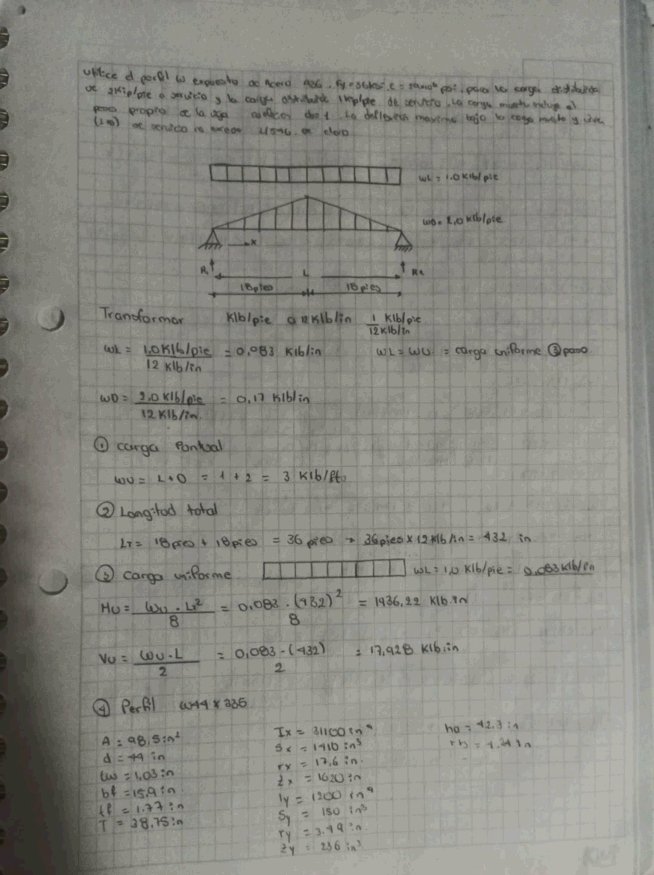 utilice el perfil W expuesto de Acero A36. Fy = 36 ksi, E = psi. para la carga distribuida
de 2Kip/pie a servicio y la carga distribuida 1Kip/pie de servicio. La carga muerta incluye el
peso propio de la viga. La deflexión maxima bajo la carga muerta y viva
de servicio no exceda de claro
WL = 1.0 Klb/pie
WD = 2.0 Klb/pie
x
R1 L R2
18 pies 18 pies
Transformar Klb/pie a Klb/in 1 Klb/pie
12 Klb/in
WL = 1.0 Klb/pie = 0,083 Klb/in WL = WU = carga uniforme ③ paso
12 Klb/in
WD = 2.0 Klb/pie = 0,17 Klb/in
12 Klb/in.
① Carga Puntual
WU = L + D = 1 + 2 = 3 Klb/ft
② Longitud total
LT = 18 pies + 18 pies = 36 pies → 36 pies x 12 Klb/in = 432 in
③ Carga uniforme WL = 1.0 Klb/pie = 0.083 Klb/in
MU = WU . L² = 0,083 . (432)² = 1936,22 Klb.in
8 8
VU = WU . L = 0,083 . (432) = 17,928 Klb.in
2 2
④ Perfil W44 x 335
A = 98,5 in²
d = 44 in
tw = 1,03 in
bf = 15,9 in
tf = 1.77 in
T = 38,75 in
Ix = 31100 in⁴
Sx = 1410 in³
rx = 17,6 in.
Zx = 1620 in³
Iy = 1200 in⁴
Sy = 150 in³
ry = 3.49 in
Zy = 236 in³
ho = 42.3 in